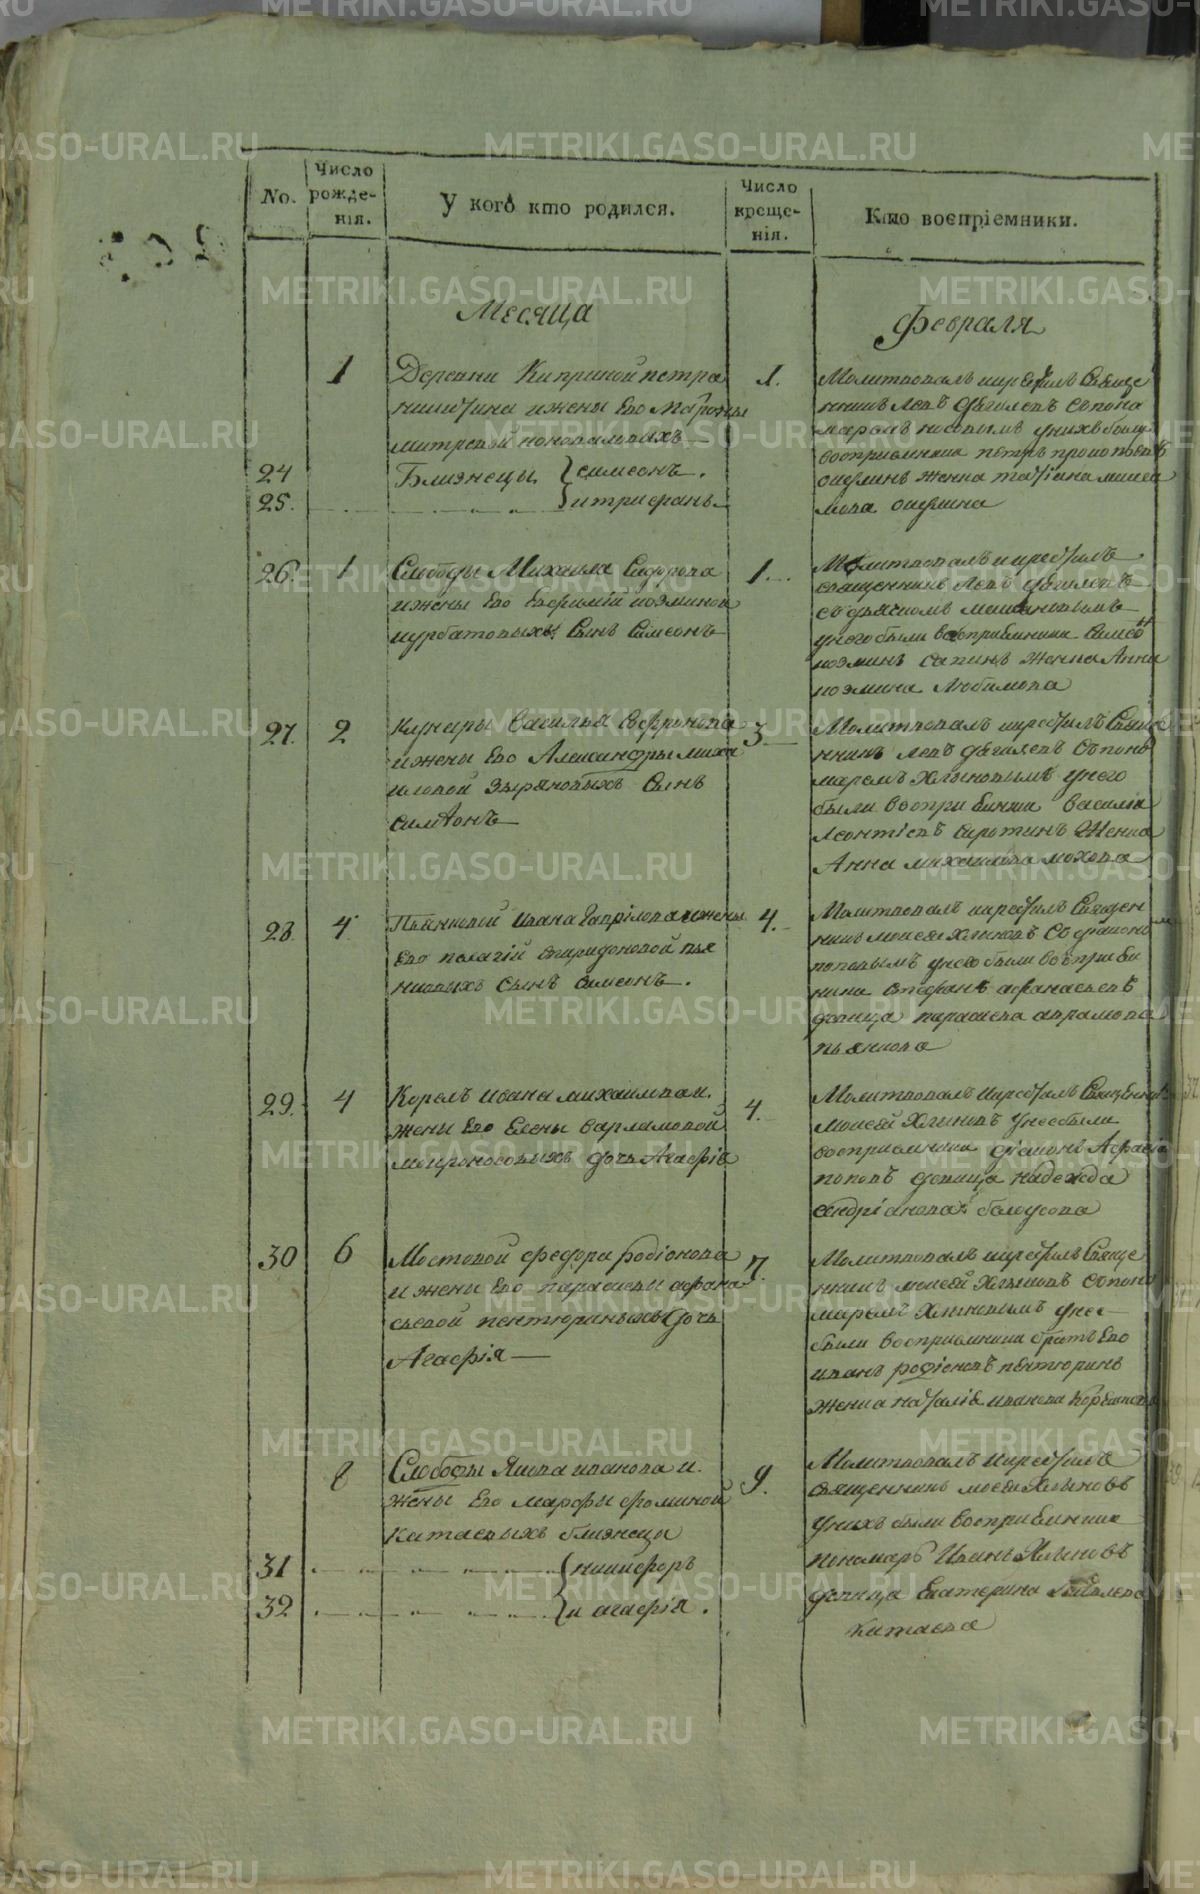 No.
Число рожде-нія.
У кого кто родился.
Число креще-нія.
Кто восприемники.
Месяца
Февраля
1
Деревни Киприной петра
никитина ижены Его матроны
митревой коноваловыхъ
24 Близнецы симеонъ.
25. итрифанъ
1.
Молитвовалъ икрестилъ Свяще
нникъ Левъ Дягилевъ съпоно
маремъ поповымъ унихъ были
восприемники петръ прокопьевъ
женка татіана
26. 1
Слободы Михаила Сидорова
ижены Его Евфимiи козминой
курбатовыхъ Сынъ Симеонъ
1.
Молитвовалъ икрестилъ
священникъ Левъ Дягилевъ
съдьячкомъ
унего были восприемники Симеонъ
козминъ сапинъ женка Анна
козмина Любимова
27. 2
Кунары Василья Софронова
ижены Его Александры миха
иловой Зыряновыхъ Сынъ
симеонъ
3
Молитвовалъ икрестилъ Свяще
нникъ левъ дягилевъ Съпоно
маремъ Хлыновымъ унего
были восприемники василiи
Леонтiевъ сиротинъ Женка
Анна михаилова мохова
28. 4
Пьянковой ивана Гаврiлова ижены
Его пелагiи спиридоновой пья
нковыхъ сынъ симеонъ.
4.
Молитвовалъ икрестилъ Священ
никъ моисей Хлыновъ Содiакономъ
поповымъ унего были восприем
ники стефанъ афанасьевъ
девица парасковья аврамова
пьянкова
29. 4
Корелъ ивана михаилова и.
жены Его Елены варламовой
мокроносовыхъ дочь Агафiя
4.
Молитвовалъ икрестилъ Священникъ
Моисей Хлыновъ унее были
восприемники дiаконъ
поповъ девица надежда
андрiанова белоусова
30 6
Мостовой федора родiонова
и жены Его парасковьи афана
сьевой пентюриныхъ дочь
Агафiя
7.
Молитвовалъ икрестилъ Свяще
нникъ моисей Хлыновъ Съпоно
маремъ Хлыновымъ унее
были восприемники братъ Его
иванъ родiоновъ пентюринъ
женка наталiя иванова
8
Слободы Якова иванова и.
жены Его марфы фоминой
Китаевыхъ близнецы
31 никифоръ
32 и агафiя.
9.
Молитвовалъ икрестилъ
священникъ моисей Хлыновъ
унихъ были восприемники
пономарь Иванъ Хлыновъ
девица Екатерина
китаева
METRIKI.GASO-URAL.RU